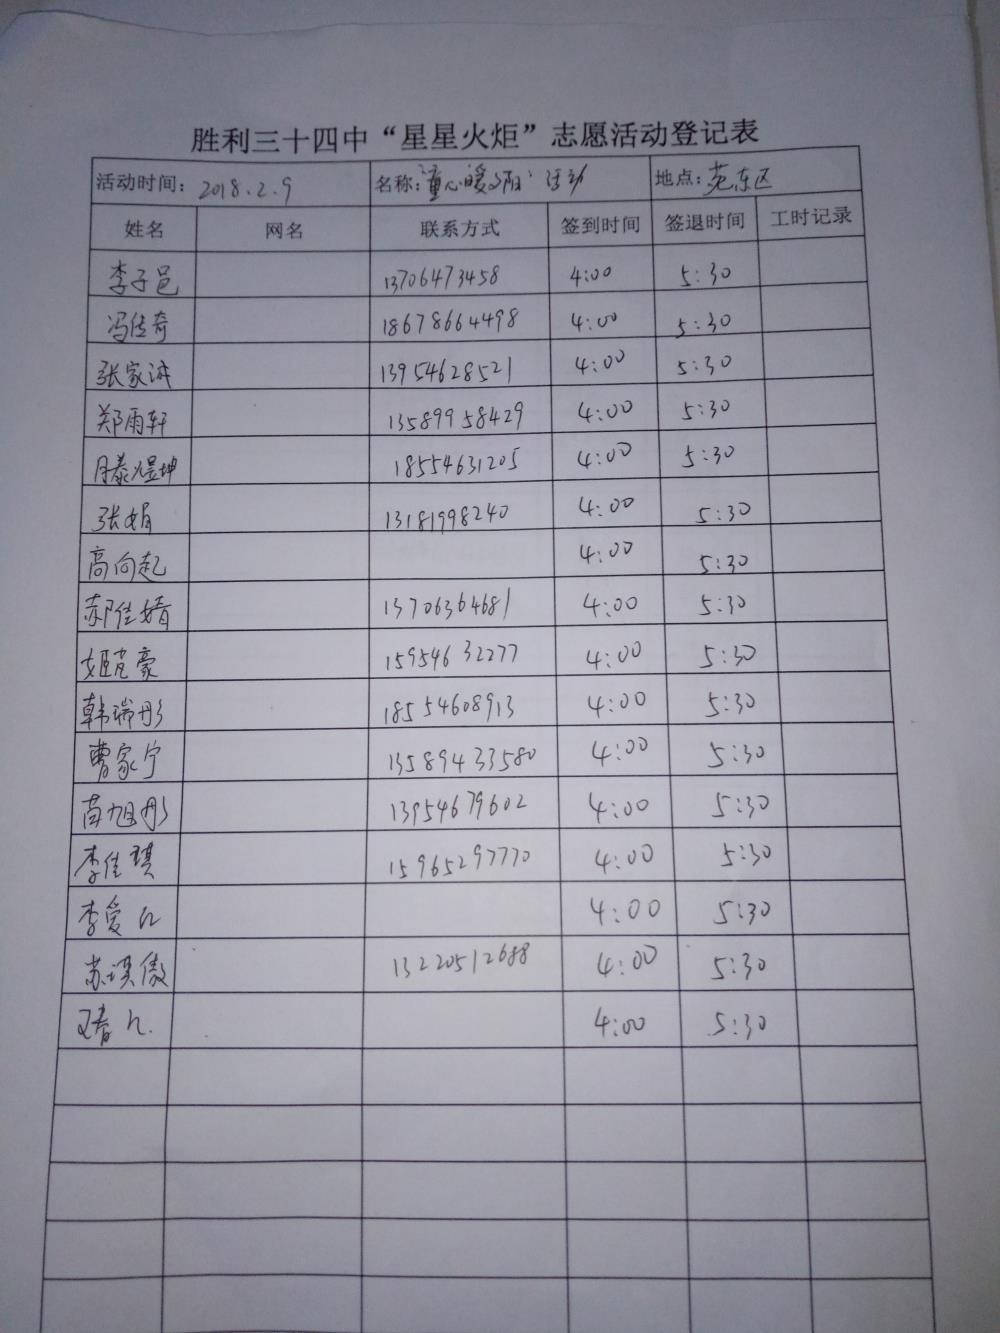 胜利三十四中“星星火炬”志愿活动登记表
活动时间: 2018.2.9 名称:“童心暖夕阳”活动 地点: 苑东区
姓名 网名 联系方式 签到时间 签退时间 工时记录
李子邑 13706473458 4:00 5:30
冯传奇 18678664498 4:00 5:30
张家诚 13954628521 4:00 5:30
郑雨轩 13589958429 4:00 5:30
滕煜坤 18554631205 4:00 5:30
张娟 13181998240 4:00 5:30
高向起 4:00 5:30
郝佳婧 13706364681 4:00 5:30
姬豪 15954632277 4:00 5:30
韩瑞彤 18554608913 4:00 5:30
曹家宁 13589433580 4:00 5:30
苗旭彤 13954679602 4:00 5:30
李佳琪 15965297770 4:00 5:30
李爱 4:00 5:30
苏琪傲 13220512688 4:00 5:30
4:00 5:30